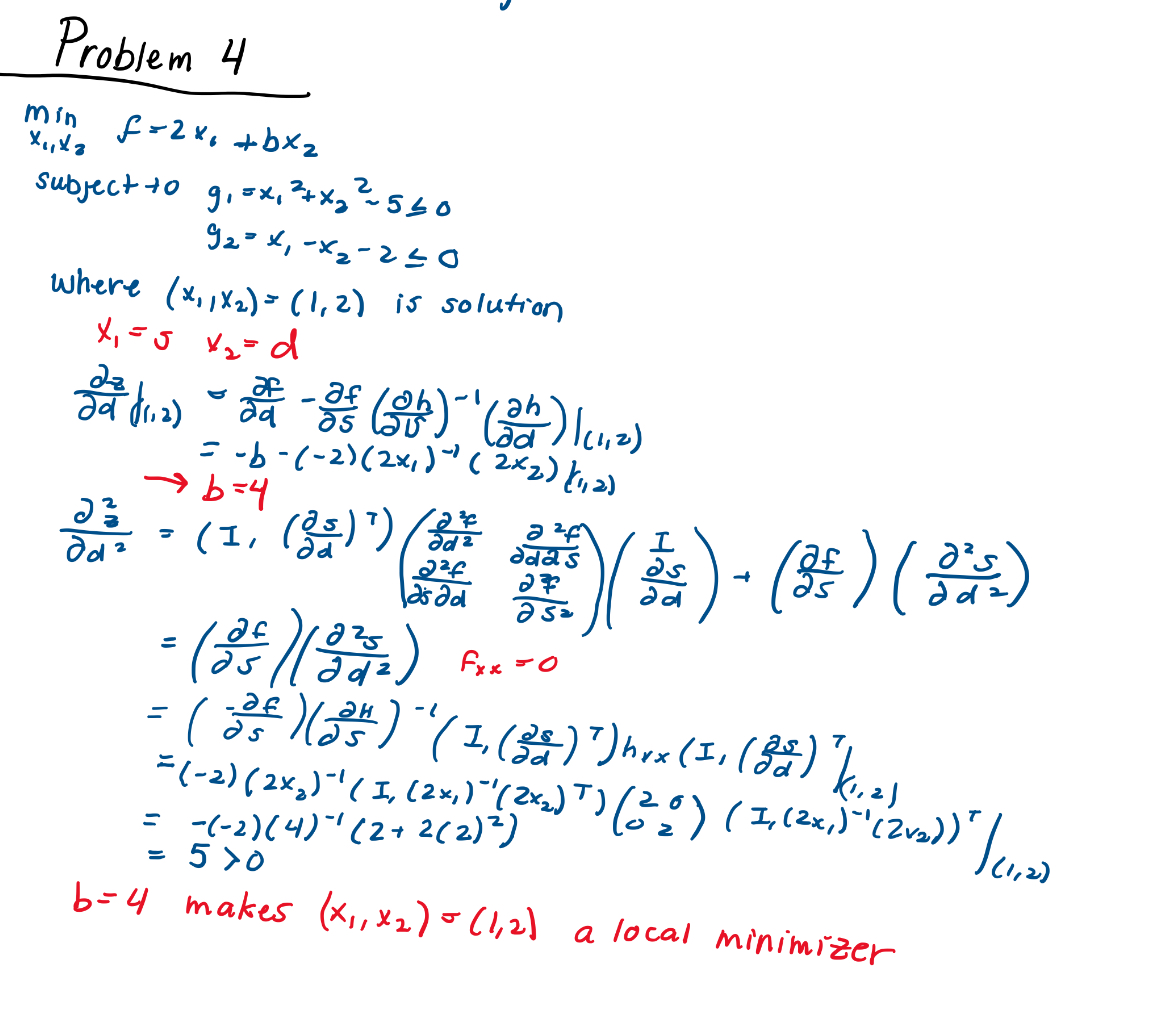 Problem 4
min f = 2x₁ + bx₂
x₁,x₂
subject to g₁ = x₁² + x₂² - 5 ≤ 0
g₂ = x₁ - x₂ - 2 ≤ 0
where (x₁,x₂) = (1,2) is solution
x₁ = s x₂ = d
∂z/∂d |(1,2) = ∂f/∂d - ∂f/∂s (∂h/∂s)⁻¹ (∂h/∂d) |(1,2)
= -b - (-2)(2x₁)⁻¹ (2x₂) |(1,2)
→ b = 4
∂²z/∂d² = (I, (∂s/∂d)ᵀ) (∂²f/∂d² ∂²f/∂d∂s ; ∂²f/∂s∂d ∂²f/∂s²) (I ; ∂s/∂d) + (∂f/∂s) (∂²s/∂d²)
= (∂f/∂s)(∂²s/∂d²) fₓₓ = 0
= (-∂f/∂s)(∂h/∂s)⁻¹ (I, (∂s/∂d)ᵀ) hₓₓ (I, (∂s/∂d)ᵀ |(1,2)
= (-2)(2x₂)⁻¹ (I, (2x₁)⁻¹(2x₂)ᵀ) (2 0 ; 0 2) (I, (2x₁)⁻¹(2x₂))ᵀ |(1,2)
= -(-2)(4)⁻¹ (2 + 2(2)²)
= 5 > 0
b = 4 makes (x₁,x₂) = (1,2) a local minimizer